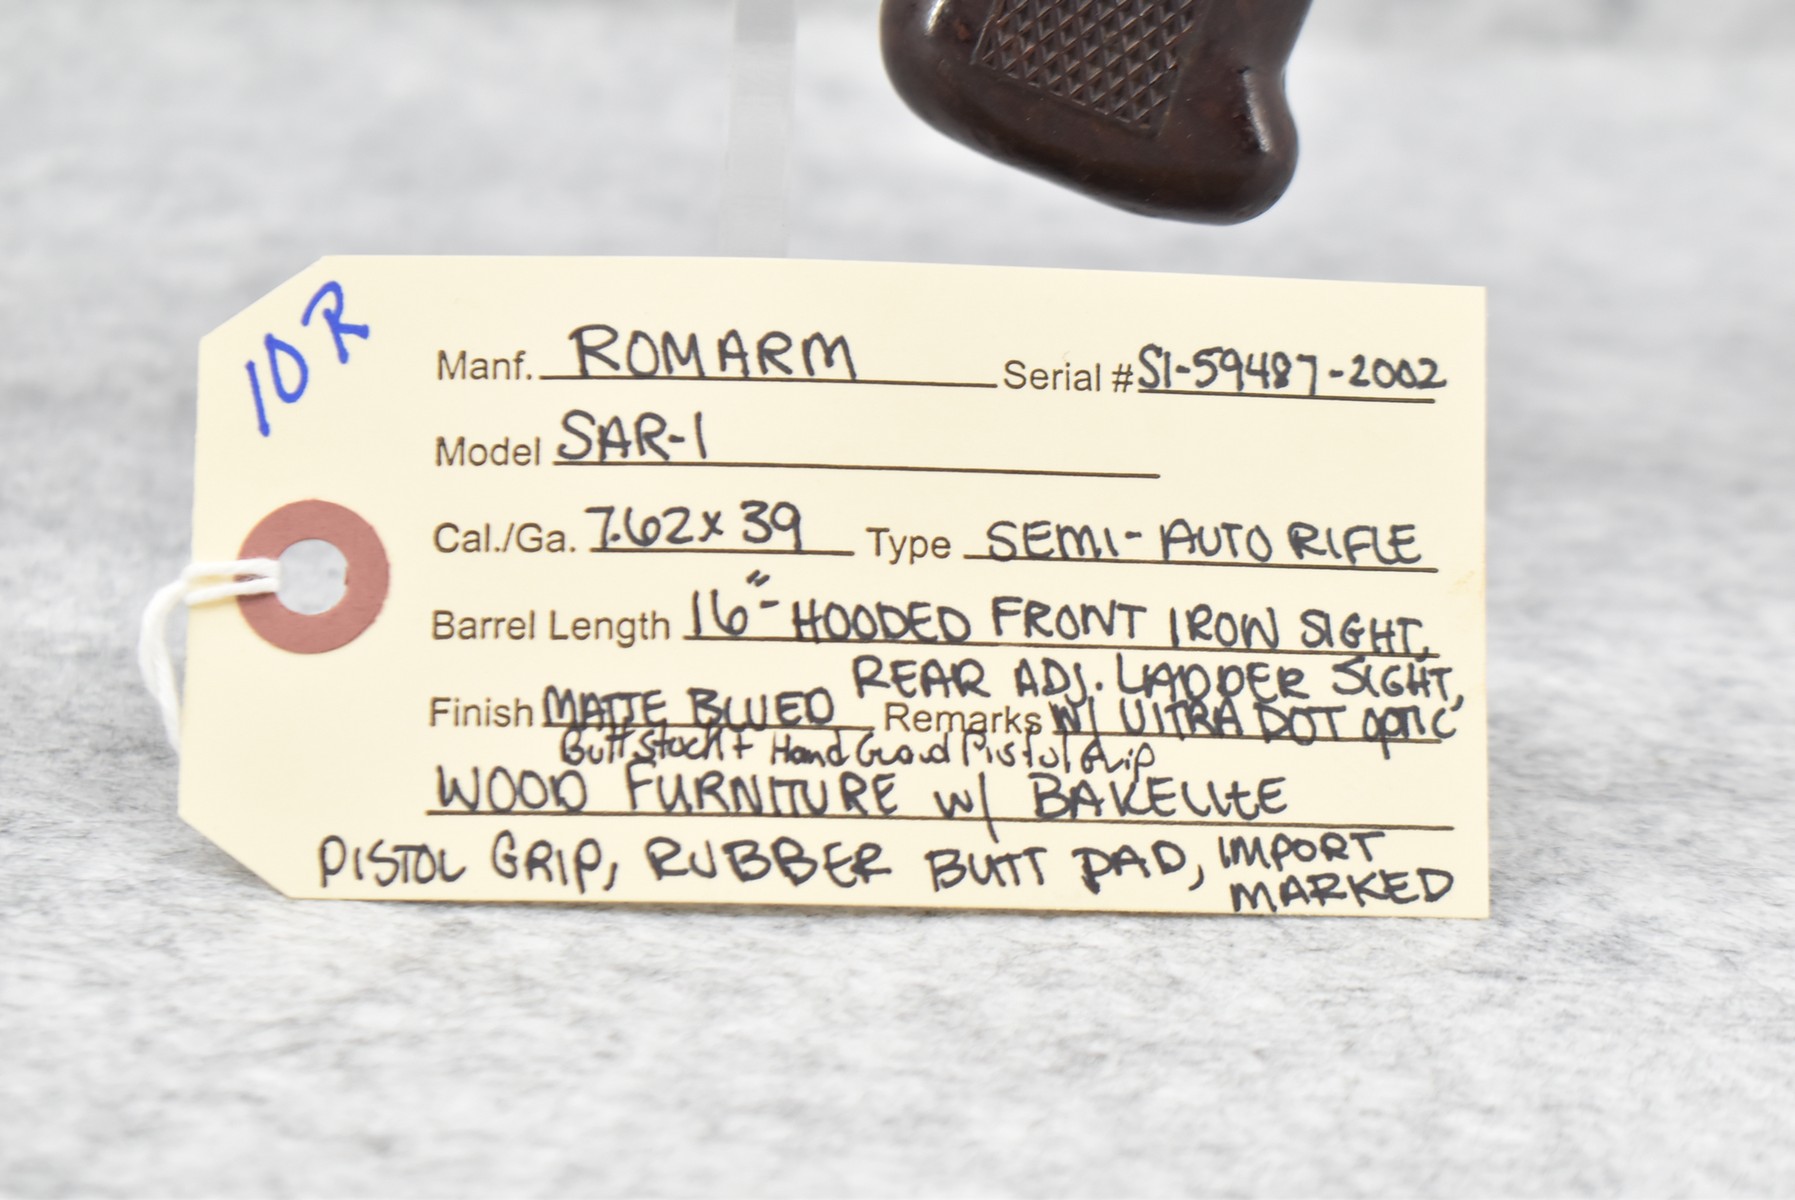 10R
Manf. ROMARM Serial # S1-59487-2002
Model SAR-1
Cal./Ga. 7.62x39 Type SEMI-AUTO RIFLE
Barrel Length 16"- HOODED FRONT IRON SIGHT,
REAR ADJ. LADDER SIGHT,
Finish MATTE BLUED Remarks W/ ULTRA DOT OPTIC
Butt Stock + Hand Grard Pistol Grip
WOOD FURNITURE w/ BAKELITE
PISTOL GRIP, RUBBER BUTT PAD, IMPORT
MARKED